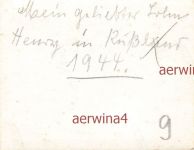 Mein geliebter Sohn
Henry in Rußland
1944.
aerwina4
aerwina4
9